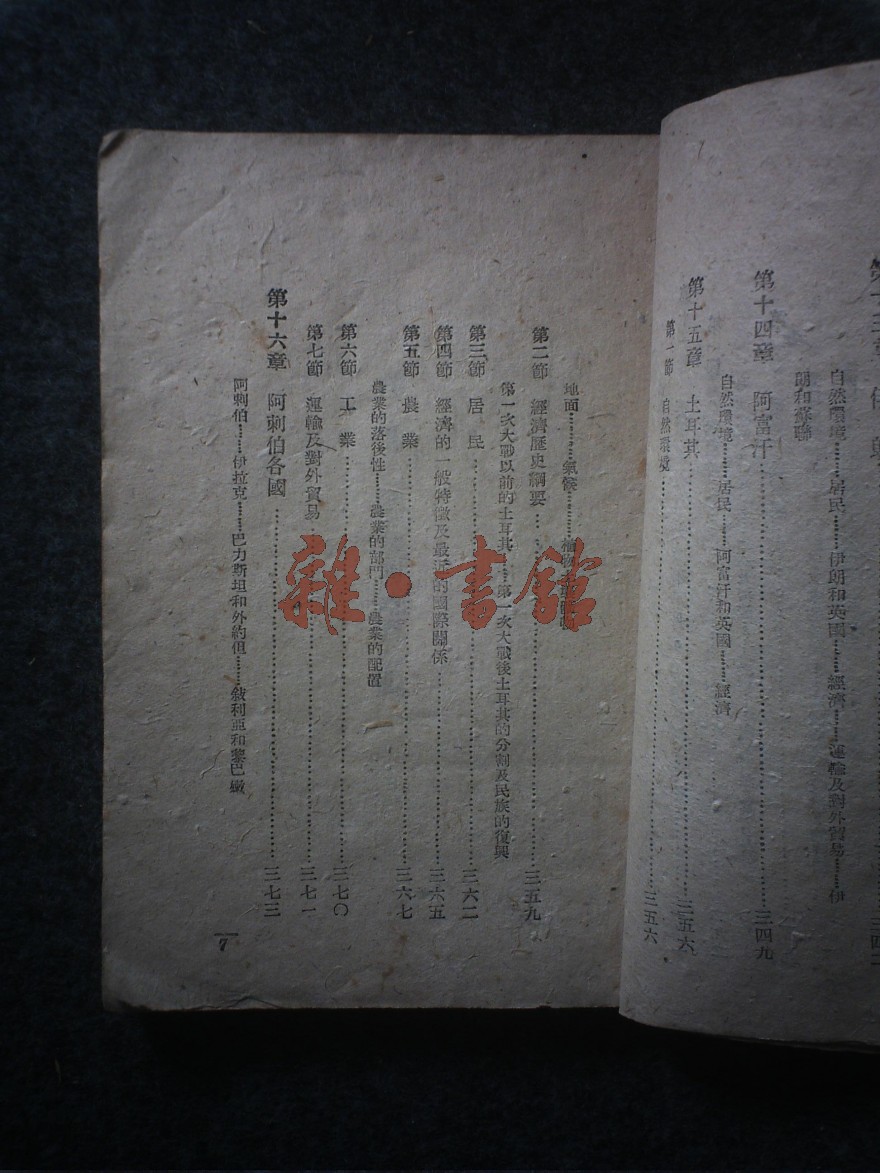 自然環境………居民………伊朗和英國………經濟………運輸及對外貿易………伊
朗和蘇聯
第十四章　阿富汗………三四九
自然環境………居民………阿富汗和英國………經濟
第十五章　土耳其………三五六
第一節　自然環境………三五六
地面………氣候………
第二節　經濟歷史綱要………三五九
第一次大戰以前的土耳其………第一次大戰後土耳其的分割及民族的復興
第三節　居民………三六二
第四節　經濟的一般特徵及最近的國際關係………三六五
第五節　農業………三六七
農業的落後性………農業的部門………農業的配置
第六節　工業………三七〇
第七節　運輸及對外貿易………三七一
第十六章　阿剌伯各國………三七三
阿剌伯………伊拉克………巴力斯坦和外約但………敍利亞和黎巴嫩
7
雜·書館